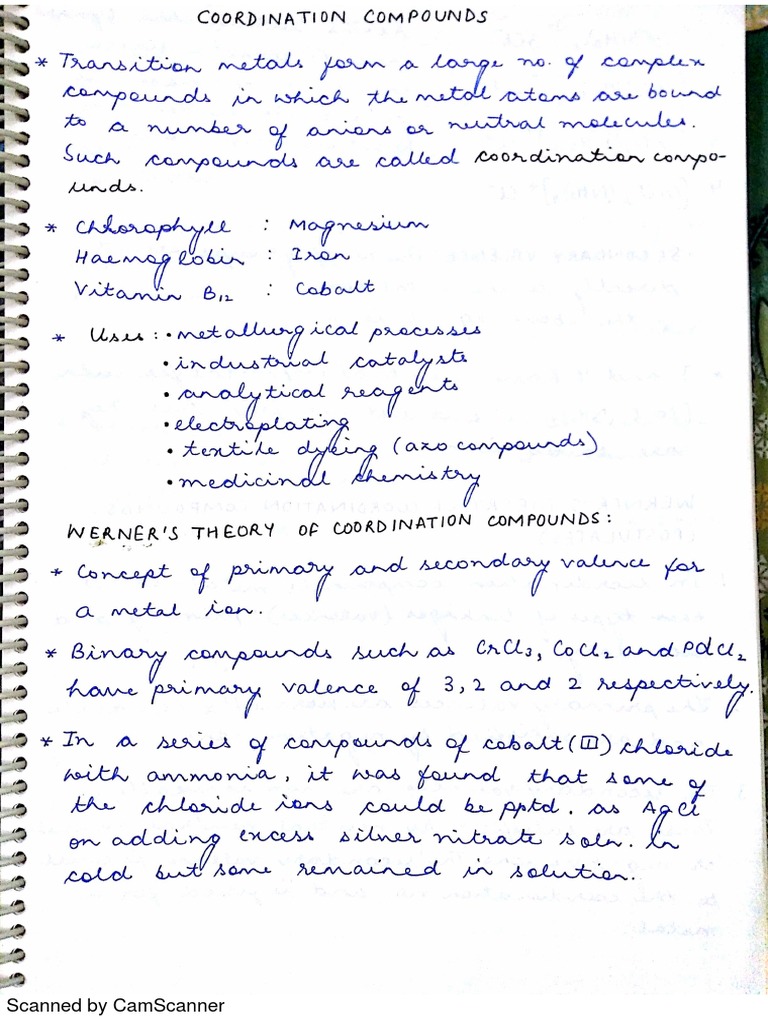 COORDINATION COMPOUNDS
* Transition metals form a large no. of complex
compounds in which the metal atoms are bound
to a number of anions or neutral molecules.
Such compounds are called coordination compo-
unds.
* Chlorophyll : Magnesium
Haemoglobin : Iron
Vitamin B₁₂ : Cobalt
* Uses : • metallurgical processes
• industrial catalysts
• analytical reagents
• electroplating
• textile dyeing (azo compounds)
• medicinal chemistry
WERNER'S THEORY OF COORDINATION COMPOUNDS:
* Concept of primary and secondary valence for
a metal ion.
* Binary compounds such as CrCl₃, CoCl₂ and PdCl₂
have primary valence of 3, 2 and 2 respectively.
* In a series of compounds of cobalt (III) chloride
with ammonia, it was found that some of
the chloride ions could be pptd. as AgCl
on adding excess silver nitrate soln. in
cold but some remained in solution.
Scanned by CamScanner